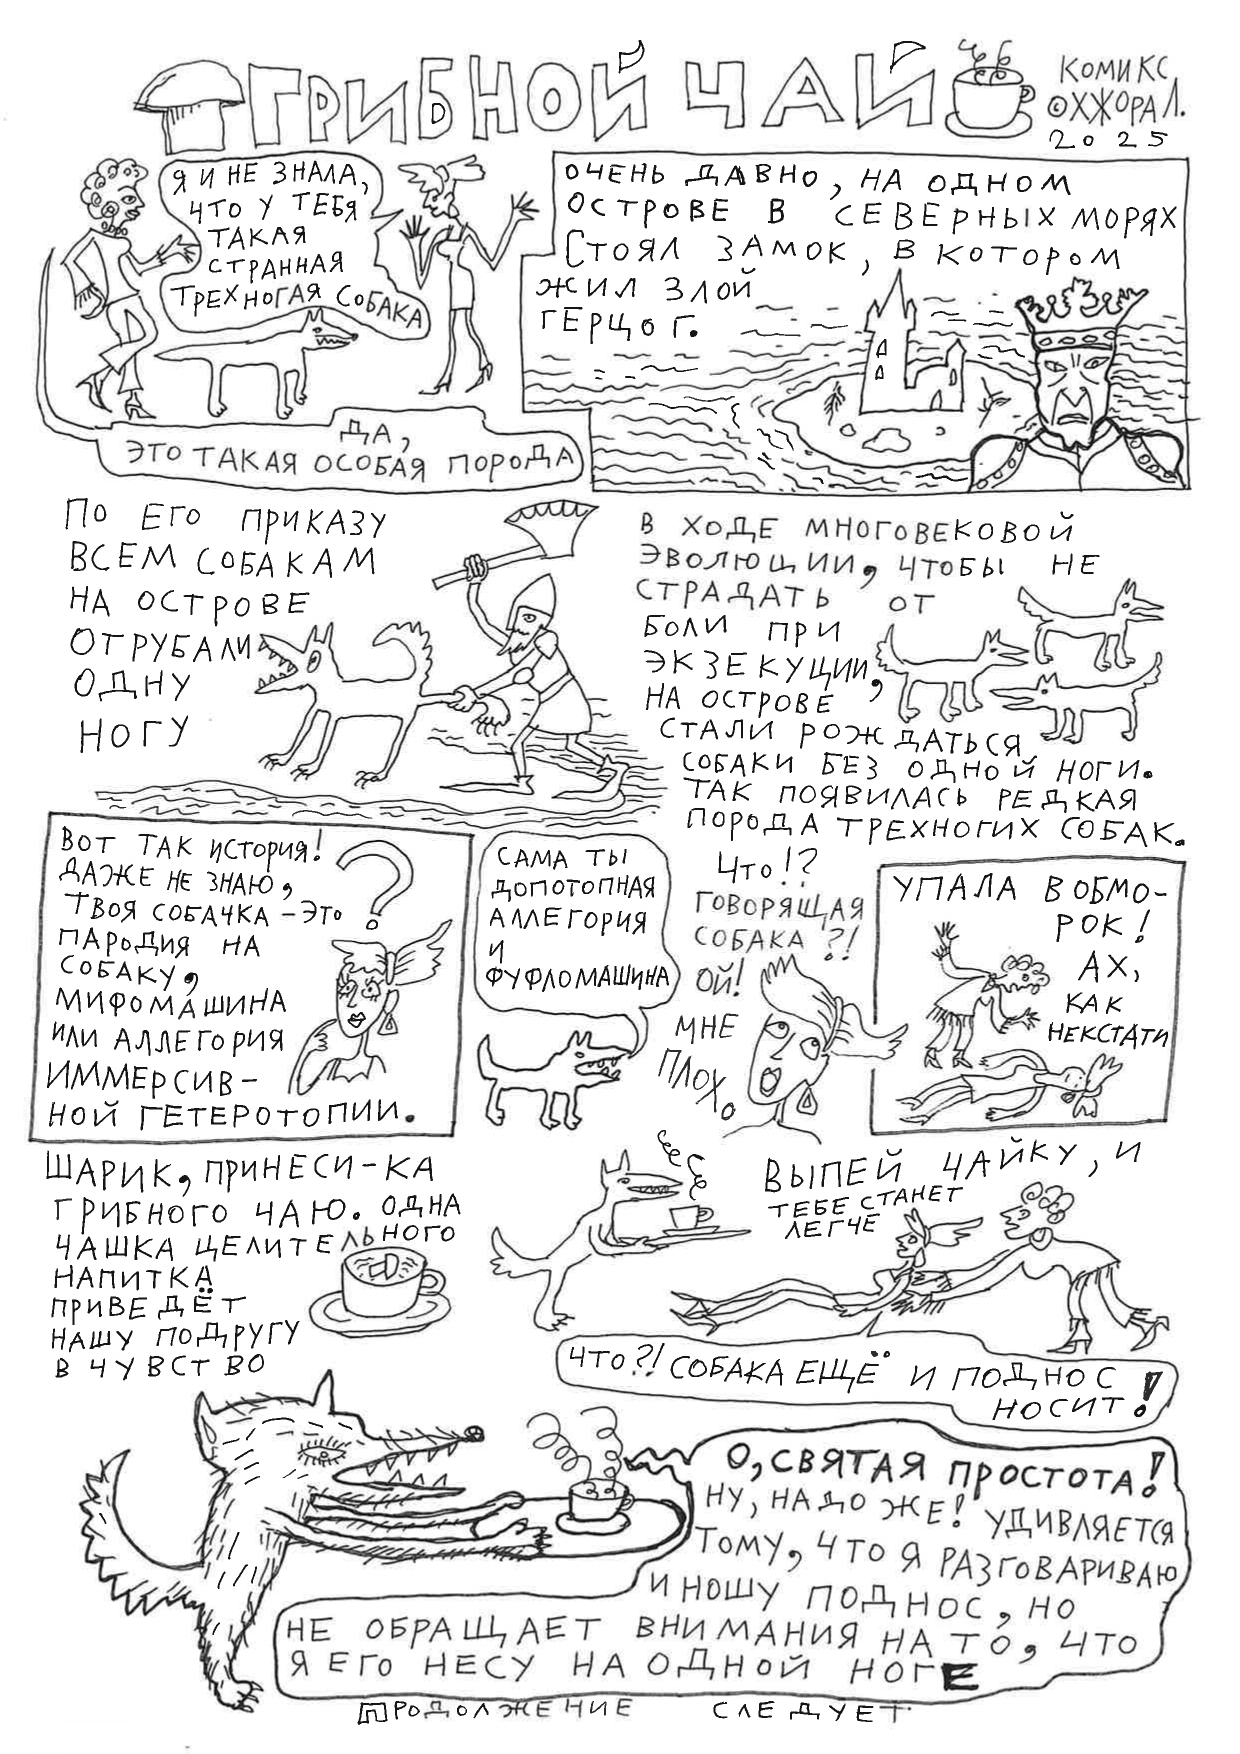 ГРИБНОЙ ЧАЙ
КОМИКС
© ХЖОРА Л.
2025
Я И НЕ ЗНАЛА,
ЧТО У ТЕБЯ
ТАКАЯ
СТРАННАЯ
ТРЕХНОГАЯ СОБАКА
ДА,
ЭТО ТАКАЯ ОСОБАЯ ПОРОДА
ОЧЕНЬ ДАВНО, НА ОДНОМ
ОСТРОВЕ В СЕВЕРНЫХ МОРЯХ
СТОЯЛ ЗАМОК, В КОТОРОМ
ЖИЛ ЗЛОЙ
ГЕРЦОГ.
ПО ЕГО ПРИКАЗУ
ВСЕМ СОБАКАМ
НА ОСТРОВЕ
ОТРУБАЛИ
ОДНУ
НОГУ
В ХОДЕ МНОГОВЕКОВОЙ
ЭВОЛЮЦИИ, ЧТОБЫ НЕ
СТРАДАТЬ ОТ
БОЛИ ПРИ
ЭКЗЕКУЦИИ,
НА ОСТРОВЕ
СТАЛИ РОЖДАТЬСЯ
СОБАКИ БЕЗ ОДНОЙ НОГИ.
ТАК ПОЯВИЛАСЬ РЕДКАЯ
ПОРОДА ТРЕХНОГИХ СОБАК.
ВОТ ТАК ИСТОРИЯ!
ДАЖЕ НЕ ЗНАЮ,
ТВОЯ СОБАЧКА – ЭТО
ПАРОДИЯ НА
СОБАКУ,
МИФОМАШИНА
ИЛИ АЛЛЕГОРИЯ
ИММЕРСИВ-
НОЙ ГЕТЕРОТОПИИ.
?
САМА ТЫ
ДОПОТОПНАЯ
АЛЛЕГОРИЯ
И
ФУФЛОМАШИНА
ЧТО!?
ГОВОРЯЩАЯ
СОБАКА ?!
ОЙ!
МНЕ
ПЛОХО
УПАЛА В ОБМО-
РОК!
АХ,
КАК
НЕКСТАТИ
ШАРИК, ПРИНЕСИ-КА
ГРИБНОГО ЧАЮ. ОДНА
ЧАШКА ЦЕЛИТЕЛЬНОГО
НАПИТКА
ПРИВЕДЁТ
НАШУ ПОДРУГУ
В ЧУВСТВО
ВЫПЕЙ ЧАЙКУ, И
ТЕБЕ СТАНЕТ
ЛЕГЧЕ
ЧТО?! СОБАКА ЕЩЁ И ПОДНОС
НОСИТ!
О, СВЯТАЯ ПРОСТОТА!
НУ, НАДО ЖЕ! УДИВЛЯЕТСЯ
ТОМУ, ЧТО Я РАЗГОВАРИВАЮ
И НОШУ ПОДНОС, НО
НЕ ОБРАЩАЕТ ВНИМАНИЯ НА ТО, ЧТО
Я ЕГО НЕСУ НА ОДНОЙ НОГЕ
ПРОДОЛЖЕНИЕ СЛЕДУЕТ